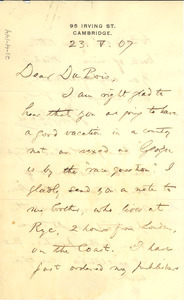 95 IRVING ST.
CAMBRIDGE.
23. V. 07
Dear Du Bois,
I am right glad to
hear that you are going to have
a good vacation in a country
not as vexed as Georgia
is by the "race question". I
gladly send you a note to
my brother, who lives at
Rye, 2 hours from London,
on the Coast. I have
just ordered my publishers